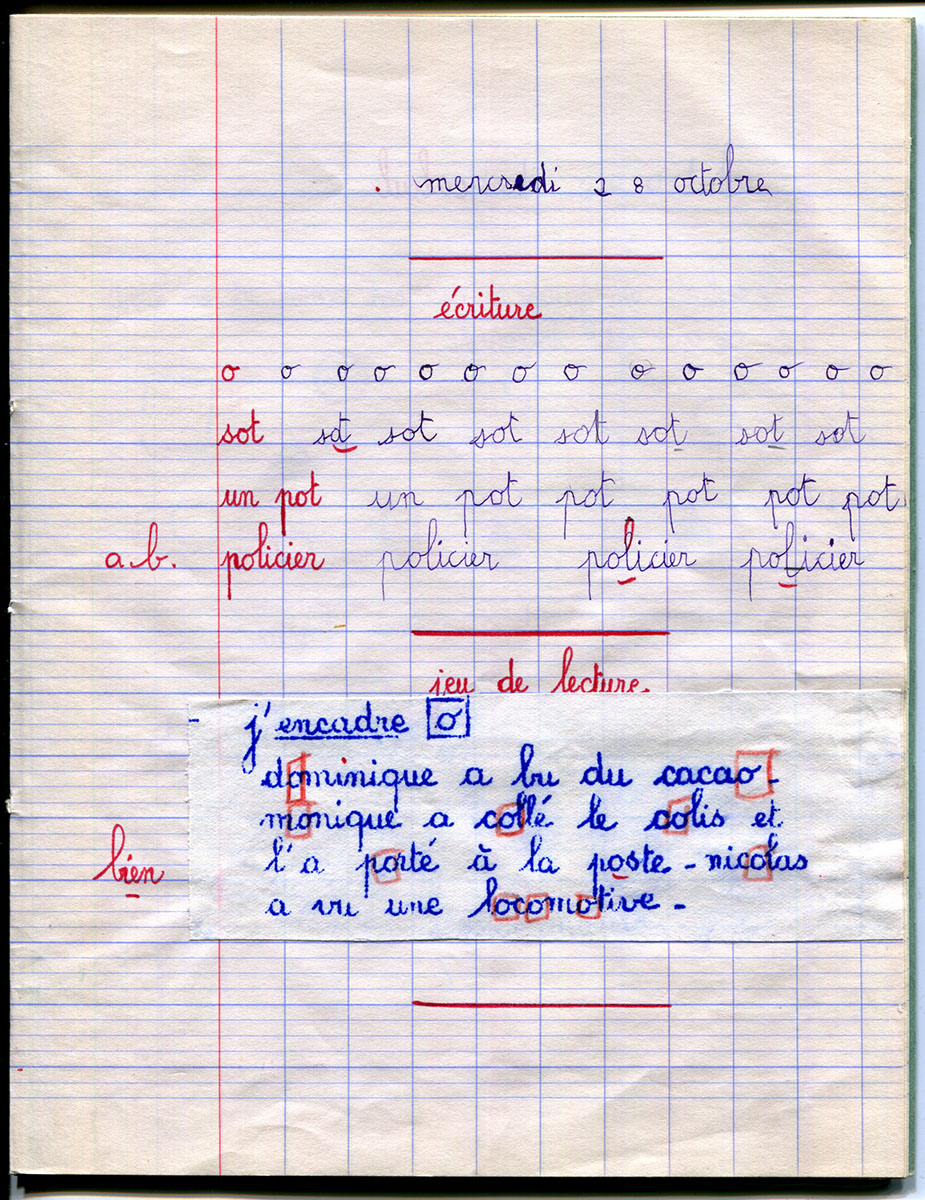 mercredi 28 octobre
écriture
o o o o o o o o o o o o o o
sot sot sot sot sot sot sot sot
un pot un pot pot pot pot pot
a.b. policier policier policier policier
jeu de lecture.
j'encadre o
dominique a bu du cacao -
monique a collé le colis et
l'a porté à la poste - nicolas
bien
a vu une locomotive -